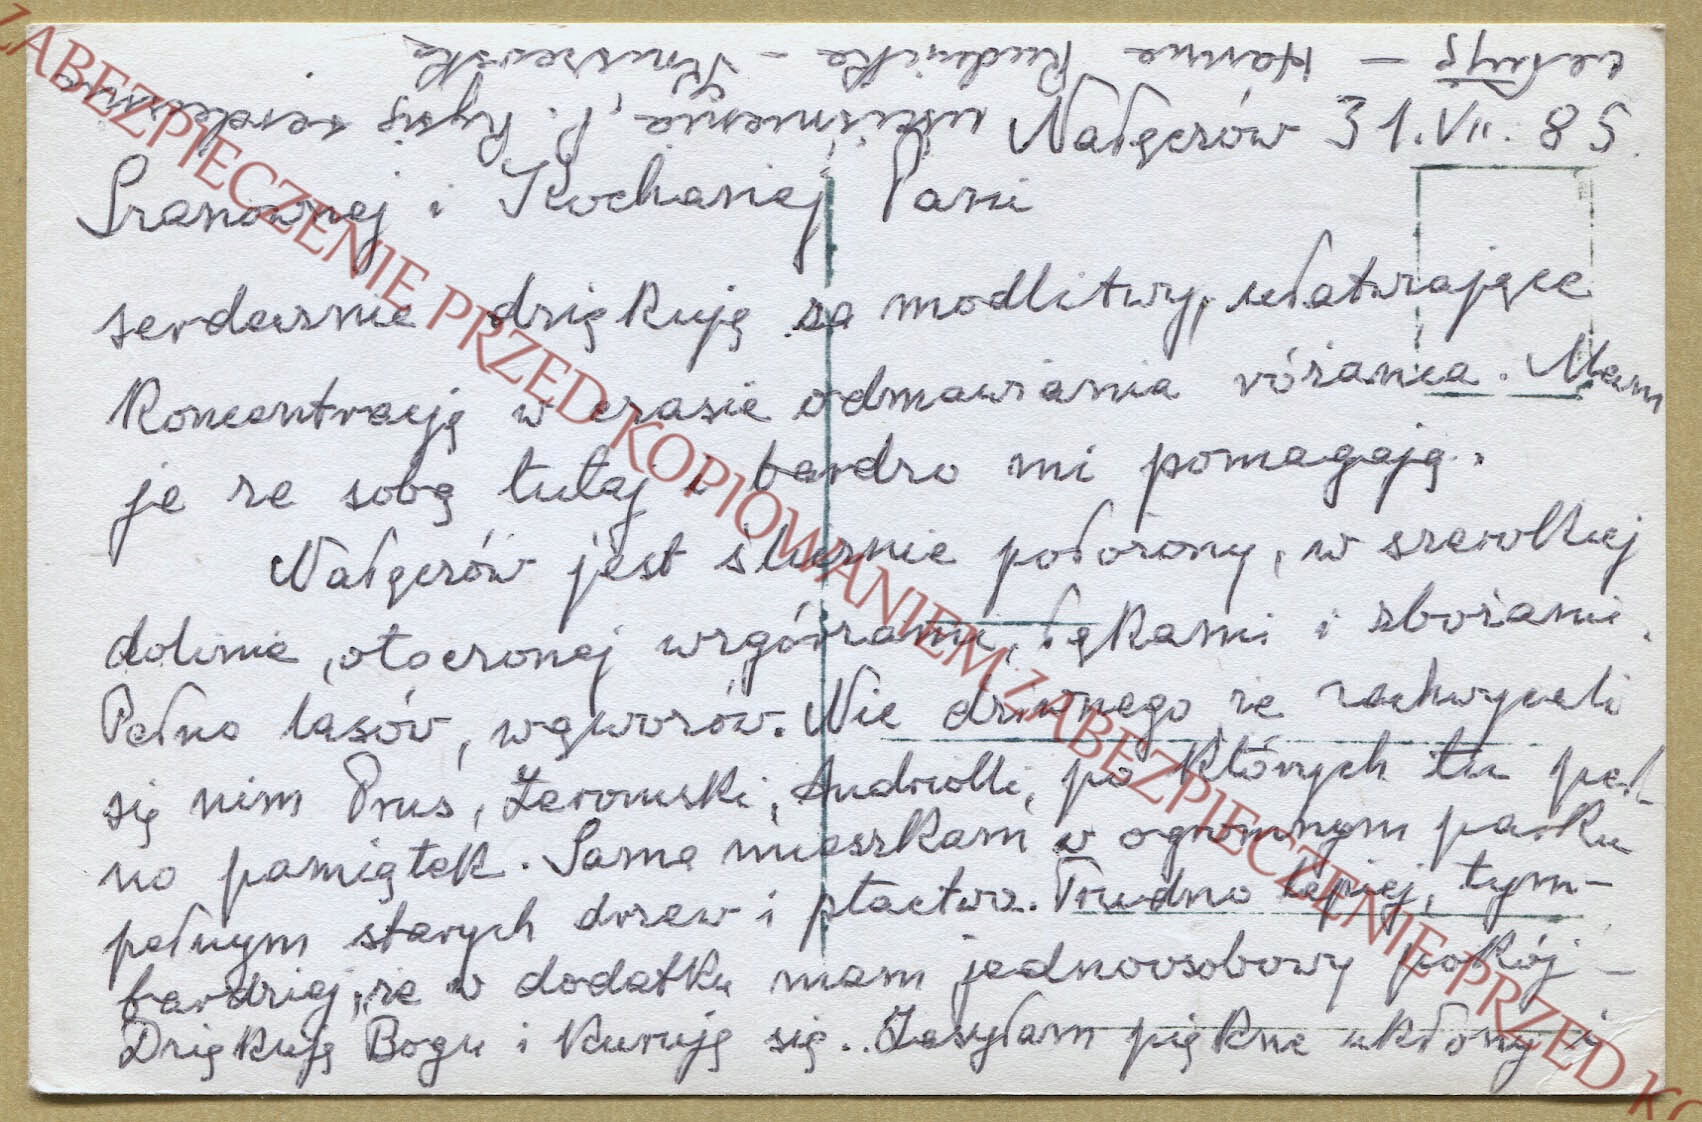 Nałęczów 31.VII.85.
Szanownej i Kochanej Pani
serdecznie dziękuję za modlitwy, ułatwiające
koncentrację w czasie odmawiania różańca. Mam
je ze sobą tutaj i bardzo mi pomagają.
Nałęczów jest ślicznie położony, w szerokiej
dolinie, otoczonej wzgórzami, łąkami i zbożami.
Pełno lasów, wąwozów. Nic dziwnego, że zachwycali
się nim Prus, Żeromski, Andriolli, po których tu peł-
no pamiątek. Sama mieszkam w ogromnym parku
pełnym starych drzew i ptactwa. Trudno lepiej, tym-
bardziej, że w dodatku mam jednoosobowy pokój –
Dziękuję Bogu i kuruję się. Zasyłam piękne ukłony i
uściśnienia, P. Rysię serdecznie
całuję – Hanna Rudnicka – Kruszewska
ZABEZPIECZENIE PRZED KOPIOWANIEM ZABEZPIECZENIE PRZED KO